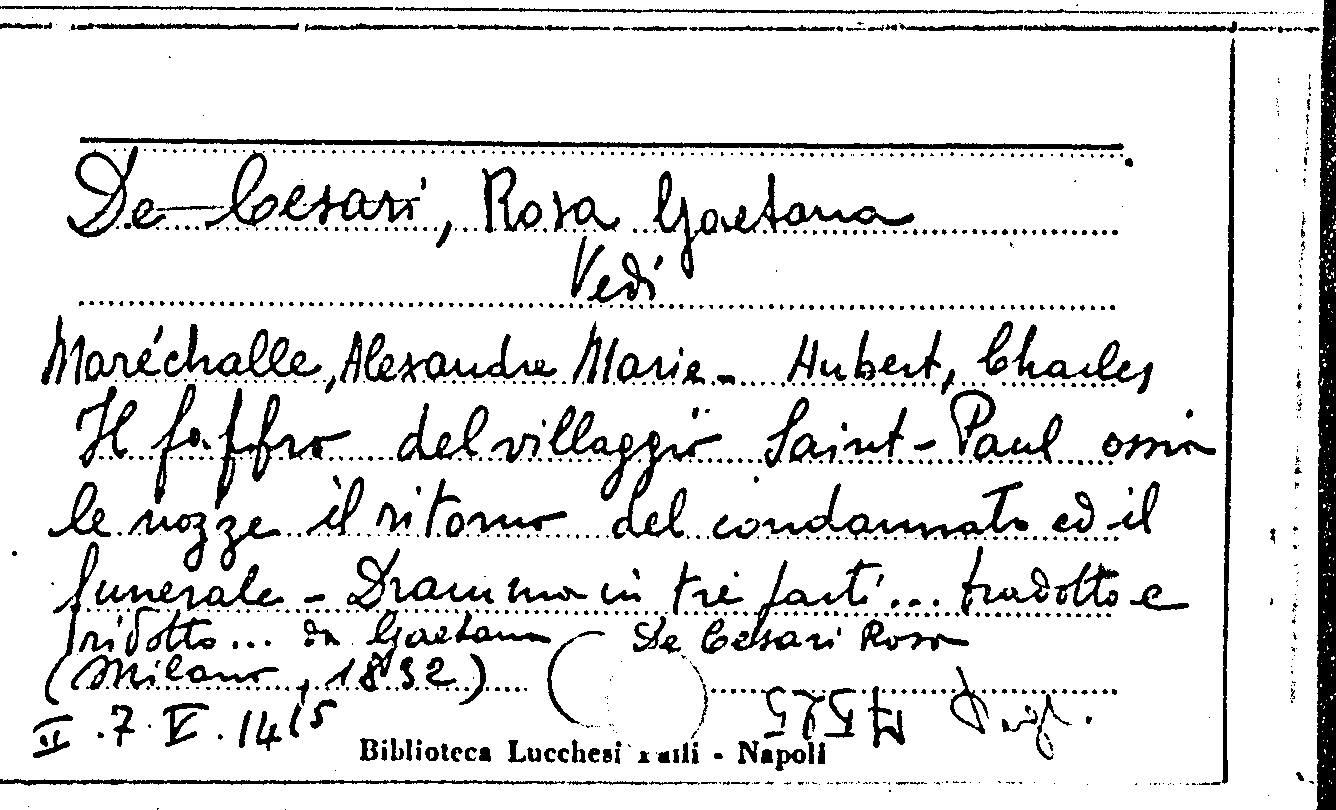 De Cesari, Rosa Gaetana
Vedi
Maréchalle, Alexandre Marie - Hubert, Charles
Il faffro del villaggio Saint-Paul ossia
le nozze il ritorno del condannato ed il
funerale - Dramma in tre parti... tradotto e
ridotto... da Gaetana De Cesari Rosa
(Milano, 1832)
II.7.V.14(5
Biblioteca Lucchesi Palli - Napoli